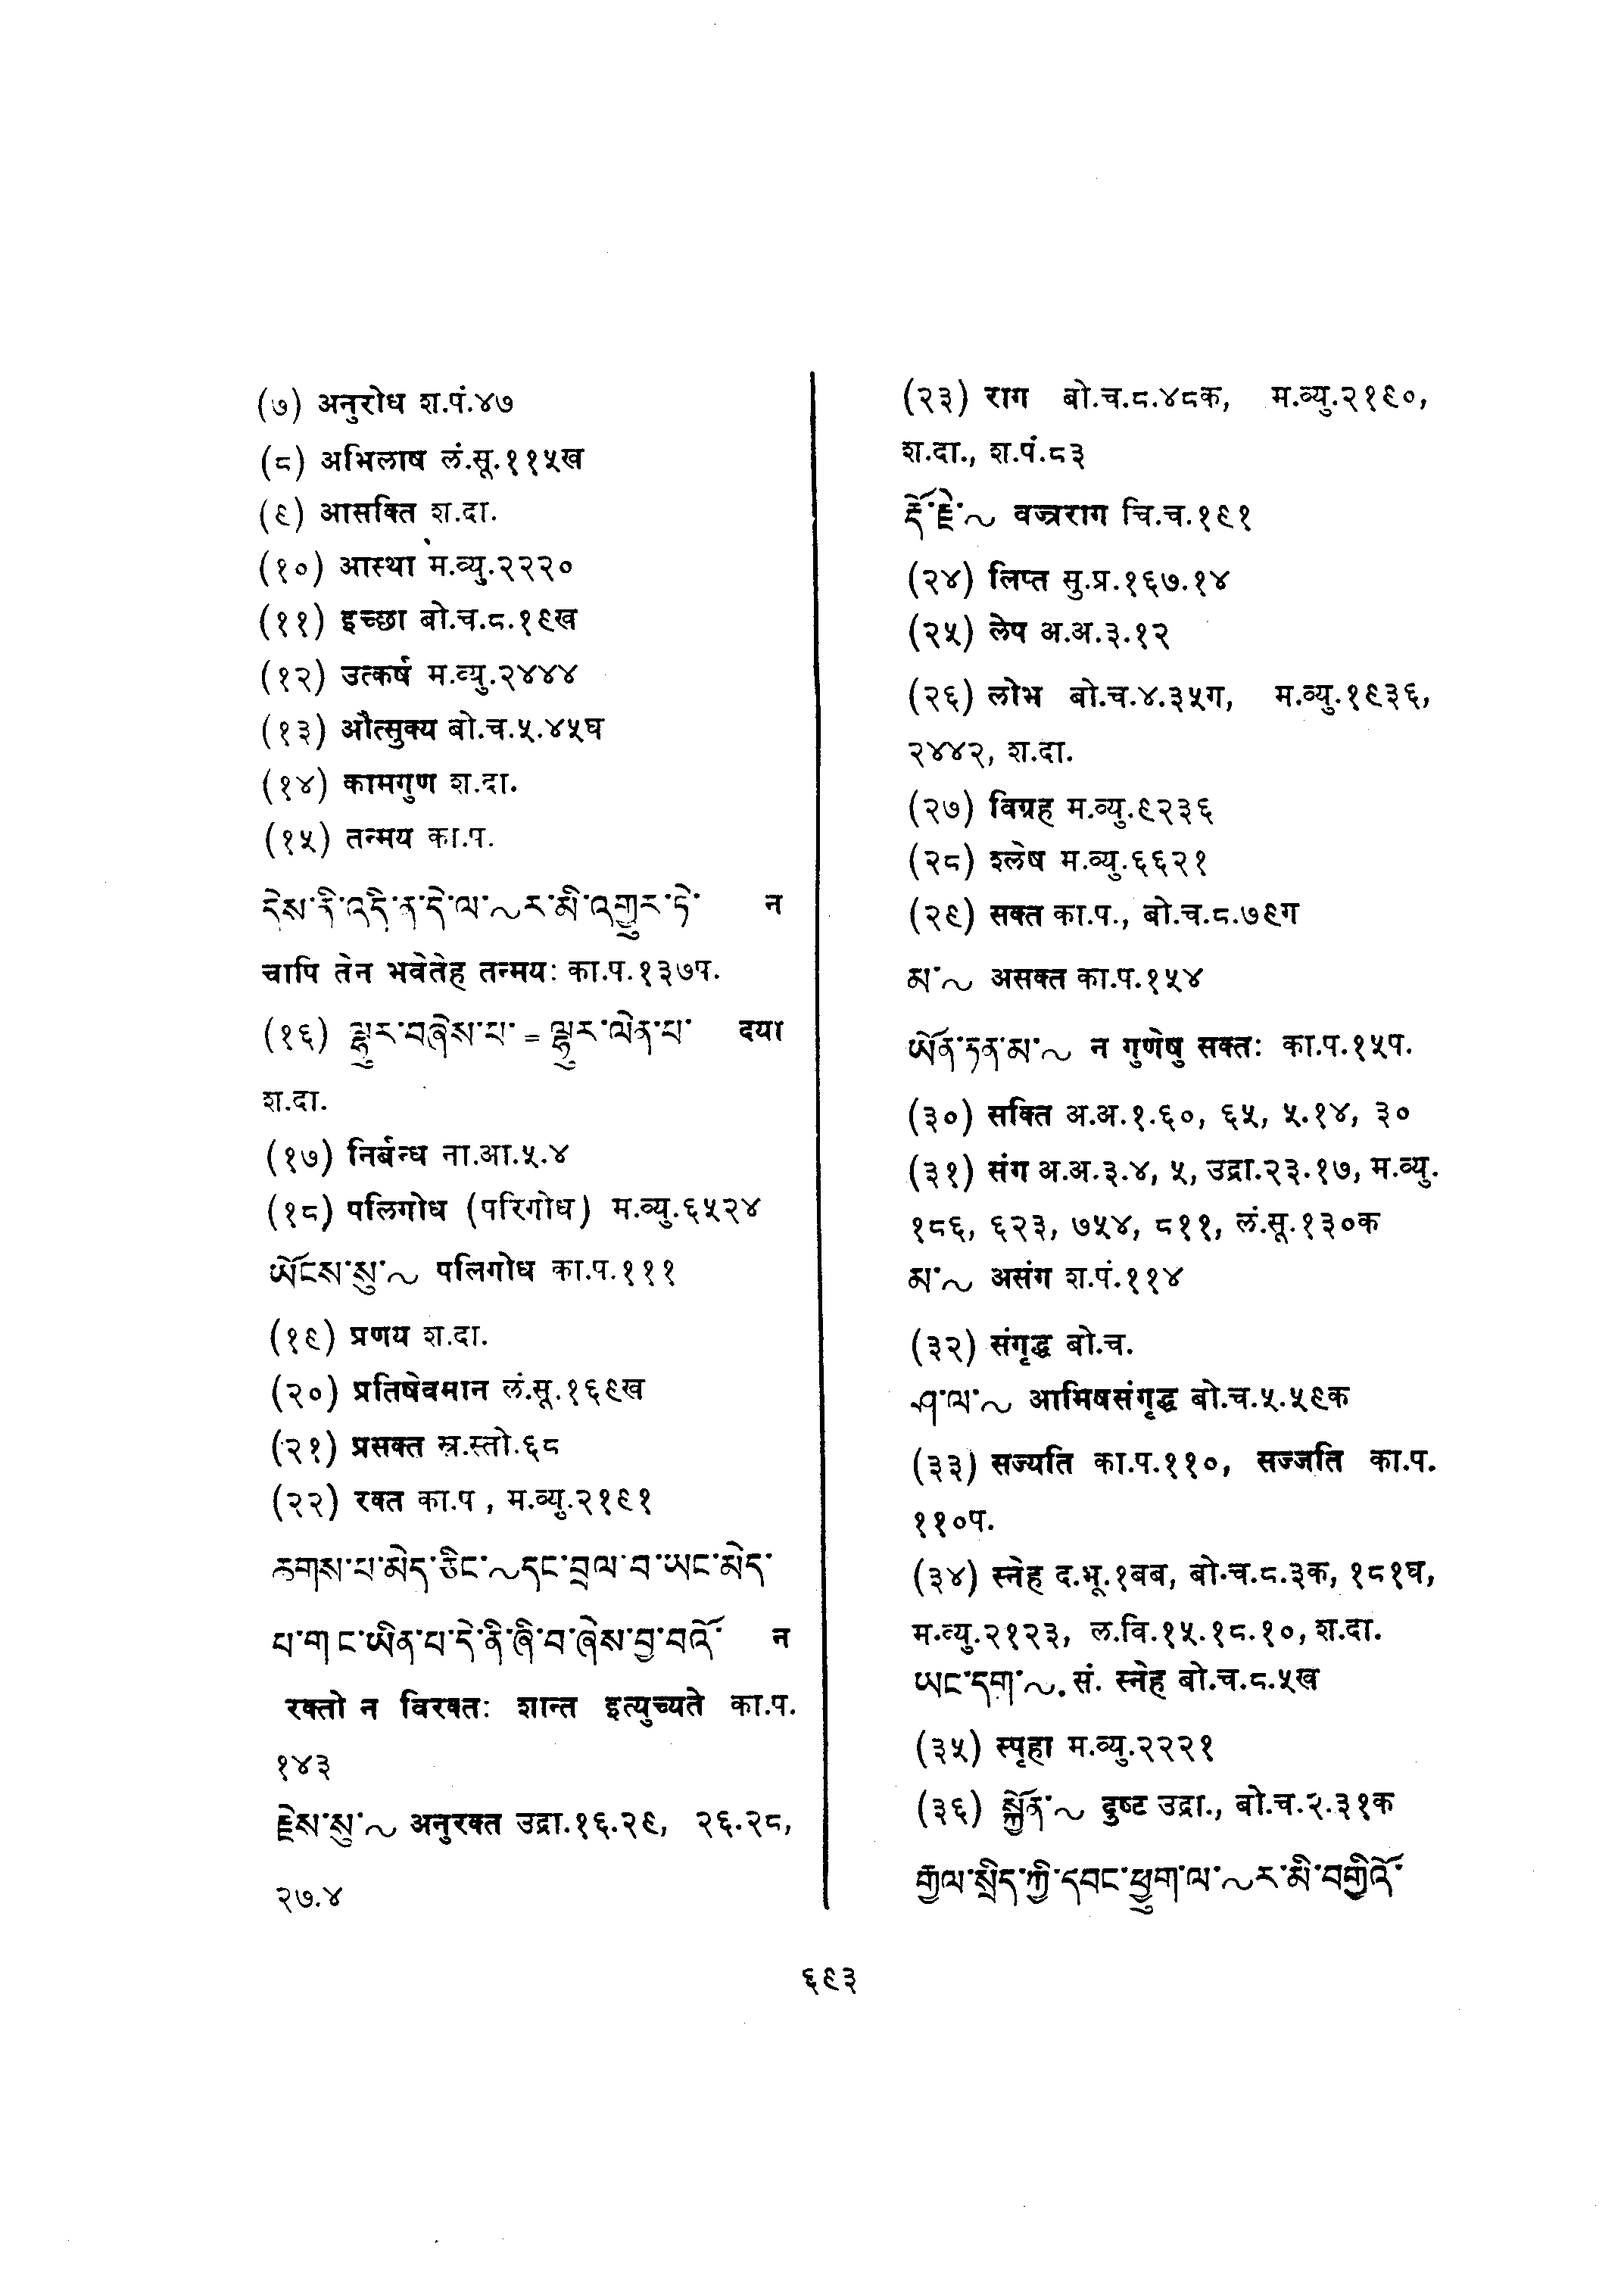 (७) अनुरोध श.पं.४७
(८) अभिलाष लं.सू.११५ख
(९) आसक्ति श.दा.
(१०) आस्था म.व्यु.२२२०
(११) इच्छा बो.च.८.१९ख
(१२) उत्कर्ष म.व्यु.२४४४
(१३) औत्सुक्य बो.च.५.४५घ
(१४) कामगुण श.दा.
(१५) तन्मय का.प.
དེས་ནི་འདི་ན་དེ་ལ་~ར་མི་འགྱུར་ཏེ་ न
चापि तेन भवेतेह तन्मयः का.प.१३७प.
(१६) ལྷུར་བཞེས་པ་ = ལྷུར་ལེན་པ་ दया
श.दा.
(१७) निर्बन्ध ना.आ.५.४
(१८) पलिगोध (परिगोध) म.व्यु.६५२४
ཡོངས་སུ་~ पलिगोध का.प.१११
(१९) प्रणय श.दा.
(२०) प्रतिषेवमान लं.सू.१६९ख
(२१) प्रसक्त स्र.स्तो.६८
(२२) रक्त का.प , म.व्यु.२१९१
ཆགས་པ་མེད་ཅིང་~དང་བྲལ་བ་ཡང་མེད་
པ་གང་ཡིན་པ་དེ་ནི་ཞི་བ་ཞེས་བྱ་བའོ་ न
रक्तो न विरक्तः शान्त इत्युच्यते का.प.
१४३
རྗེས་སུ་~ अनुरक्त उद्रा.१६.२९, २६.२८,
२७.४
(२३) राग बो.च.८.४८क, म.व्यु.२१९०,
श.दा., श.पं.८३
རྡོ་རྗེ་~ वज्रराग चि.च.१९१
(२४) लिप्त सु.प्र.१६७.१४
(२५) लेप अ.अ.३.१२
(२६) लोभ बो.च.४.३५ग, म.व्यु.१९३६,
२४४२, श.दा.
(२७) विग्रह म.व्यु.९२३६
(२८) श्लेष म.व्यु.६६२१
(२९) सक्त का.प., बो.च.८.७९ग
མ་~ असक्त का.प.१५४
ཡོན་ཏན་མ་~ न गुणेषु सक्तः का.प.१५प.
(३०) सक्ति अ.अ.१.६०, ६५, ५.१४, ३०
(३१) संग अ.अ.३.४, ५, उद्रा.२३.१७, म.व्यु.
१८६, ६२३, ७५४, ८११, लं.सू.१३०क
མ་~ असंग श.पं.११४
(३२) संगृद्ध बो.च.
ཤ་ལ་~ आमिषसंगृद्ध बो.च.५.५९क
(३३) सज्यति का.प.११०, सज्जति का.प.
११०प.
(३४) स्नेह द.भू.१बब, बो.च.८.३क, १८१घ,
म.व्यु.२१२३, ल.वि.१५.१८.१०, श.दा.
ཡང་དག་~. सं. स्नेह बो.च.८.५ख
(३५) स्पृहा म.व्यु.२२२१
(३६) སྐྱོན་~ दुष्ट उद्रा., बो.च.२.३१क
རྒྱལ་སྲིད་ཀྱི་དབང་ཕྱུག་ལ་~ར་མི་བགྱིའོ་
६९३